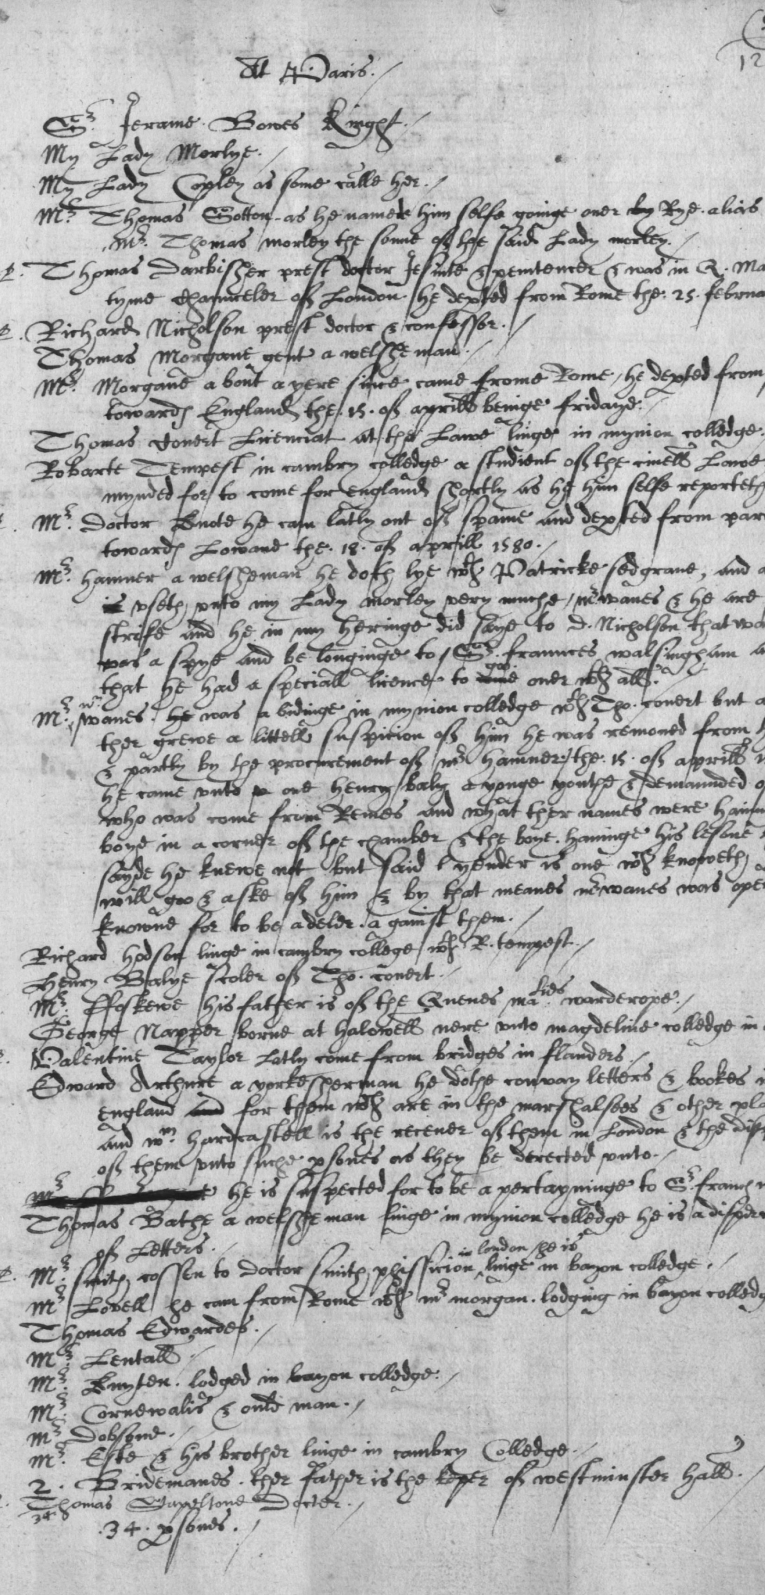 12
At Paris.
Sr. Jerame Bowes Knight.
My Lady Morlye.
My Lady Copley as some calle her.
Mr. Thomas Cotton as he named him selfe goinge over by Rye. alias
Mr. Thomas morley the sonne of the said Lady morley.
P. Thomas Darbisher prest doctor Jesuite & penitencer & was in Q. Ma
tyme chaunceler of London he depted from Rome the 25. februa
P. Richard Nicholson prest doctor & confessor.
Thomas Morgane gent a welshe man.
Mr. Morgane a bout a yere since came frome Rome, he depted from
towards England the .15. of aprill beinge fridaye.
Thomas Covert Licenciat at the Lawe linge in mynion colledge.
Robarte Tempest in cambry colledge a studient of the civell Lawe
mynded for to come for england shortly as he him selfe reporteth
Mr. doctor Bnote he cam latly out of spaine and depted from par
towards Lovane the .18. of aprill 1580.
Mr. hamner a welsheman he doth lye wth Patricke sedgrave, and a
is useth unto my Lady morley very muche, mr wanes & he are
strife and he in my heringe did saye to d. Nicholson that wa
was a spye and be longinge to Sr. fraunces walsingham a
that he had a speciall licence to goe over wth all.
Mr. wanes. he was a bidinge in mynion colledge wth Tho. covert but a
ther grewe a littell suspicion of him he was removed from t
& partly by the procurement of mr hamner, the .15. of aprill
he came unto one henry baly a yonge youthe & demaunded o
who was come from Remes and what ther names were havin
boye in a corner of the chamber & the boye. havinge his lesone
sayde he knewe not but said yender is one wch knoweth
will goo & aske of him & by that meanes mr wanes was ope
knowne for to be a deler a gainst them.
Richard hodson linge in cambry college wth R. tempest.
Henry Balye scoler of Tho. covert.
Mr. ffoskewe his father is of the Quenes maties warderope.
George Napper borne at halowell nere unto magdeline colledge in
Valentine Taylor latly come from bridges in flanders.
Edward Arthure a yorkesherman he dothe convay letters & bookes
england and for them wch are in the marshalsees & other pla
and wm. hardcastell is the recever of them in London & the disp
of them unto suche psones as they be derected unto.
he is suspected for to be a pertayninge to Sr. franc
Thomas Bathe a welshe man linge in mynion colledge he is a disper
of Letters.
in london, he is
Mr. smith, cossen to doctor smith phisicion linge in bayon colledge.
Mr. Lovell he cam from Rome wth mr morgan. lodging in bayon colledg
Thomas Edwardes.
Mr. Lentall
Mr. lodged in bayon colledge.
Mr. Cornewalis & ould man.
Mr. Dobsone.
Mr. Este & his brother linge in cambry Colledge.
2. Bridemanes. ther father is the keper of westminster hall.
Thomas Stapeltone Docter.
34
.34. psones.